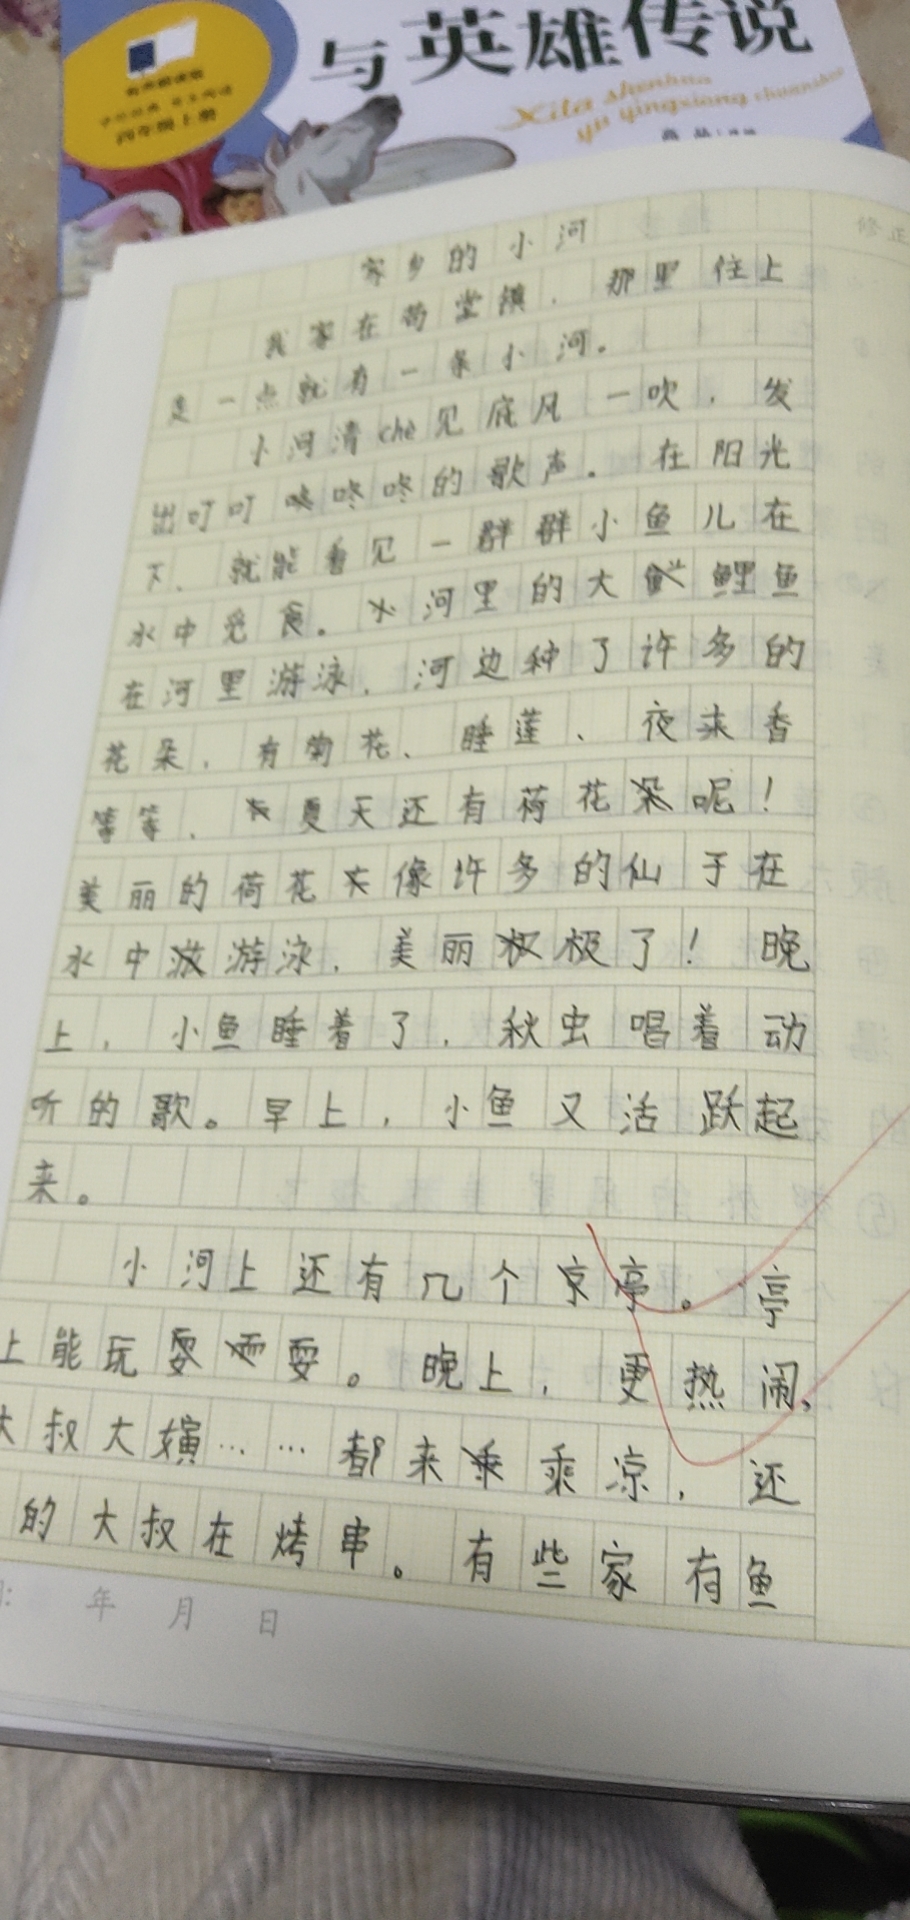 与英雄传说
Xila shenhua
yu yingxiong chuanshuo
四年级上册
修正
家乡的小河
我家在苟堂镇，那里往上
是一点就有一条小河。
小河清chè见底风一吹，发
出叮叮咚咚咚的歌声。在阳光
下，就能看见一群群小鱼儿在
水中觅食。河里的大鲤鱼
在河里游泳，河边种了许多的
花朵，有菊花、睡莲、夜来香
等等，夏天还有荷花呢！
美丽的荷花像许多的仙子在
水中游泳，美丽极了！晚
上，小鱼睡着了，秋虫唱着动
听的歌。早上，小鱼又活跃起
来。
小河上还有几个亭。亭
上能玩耍。晚上，更热闹，
大叔大嫃……都来乘凉，还
的大叔在烤串。有些家有鱼
年 月 日